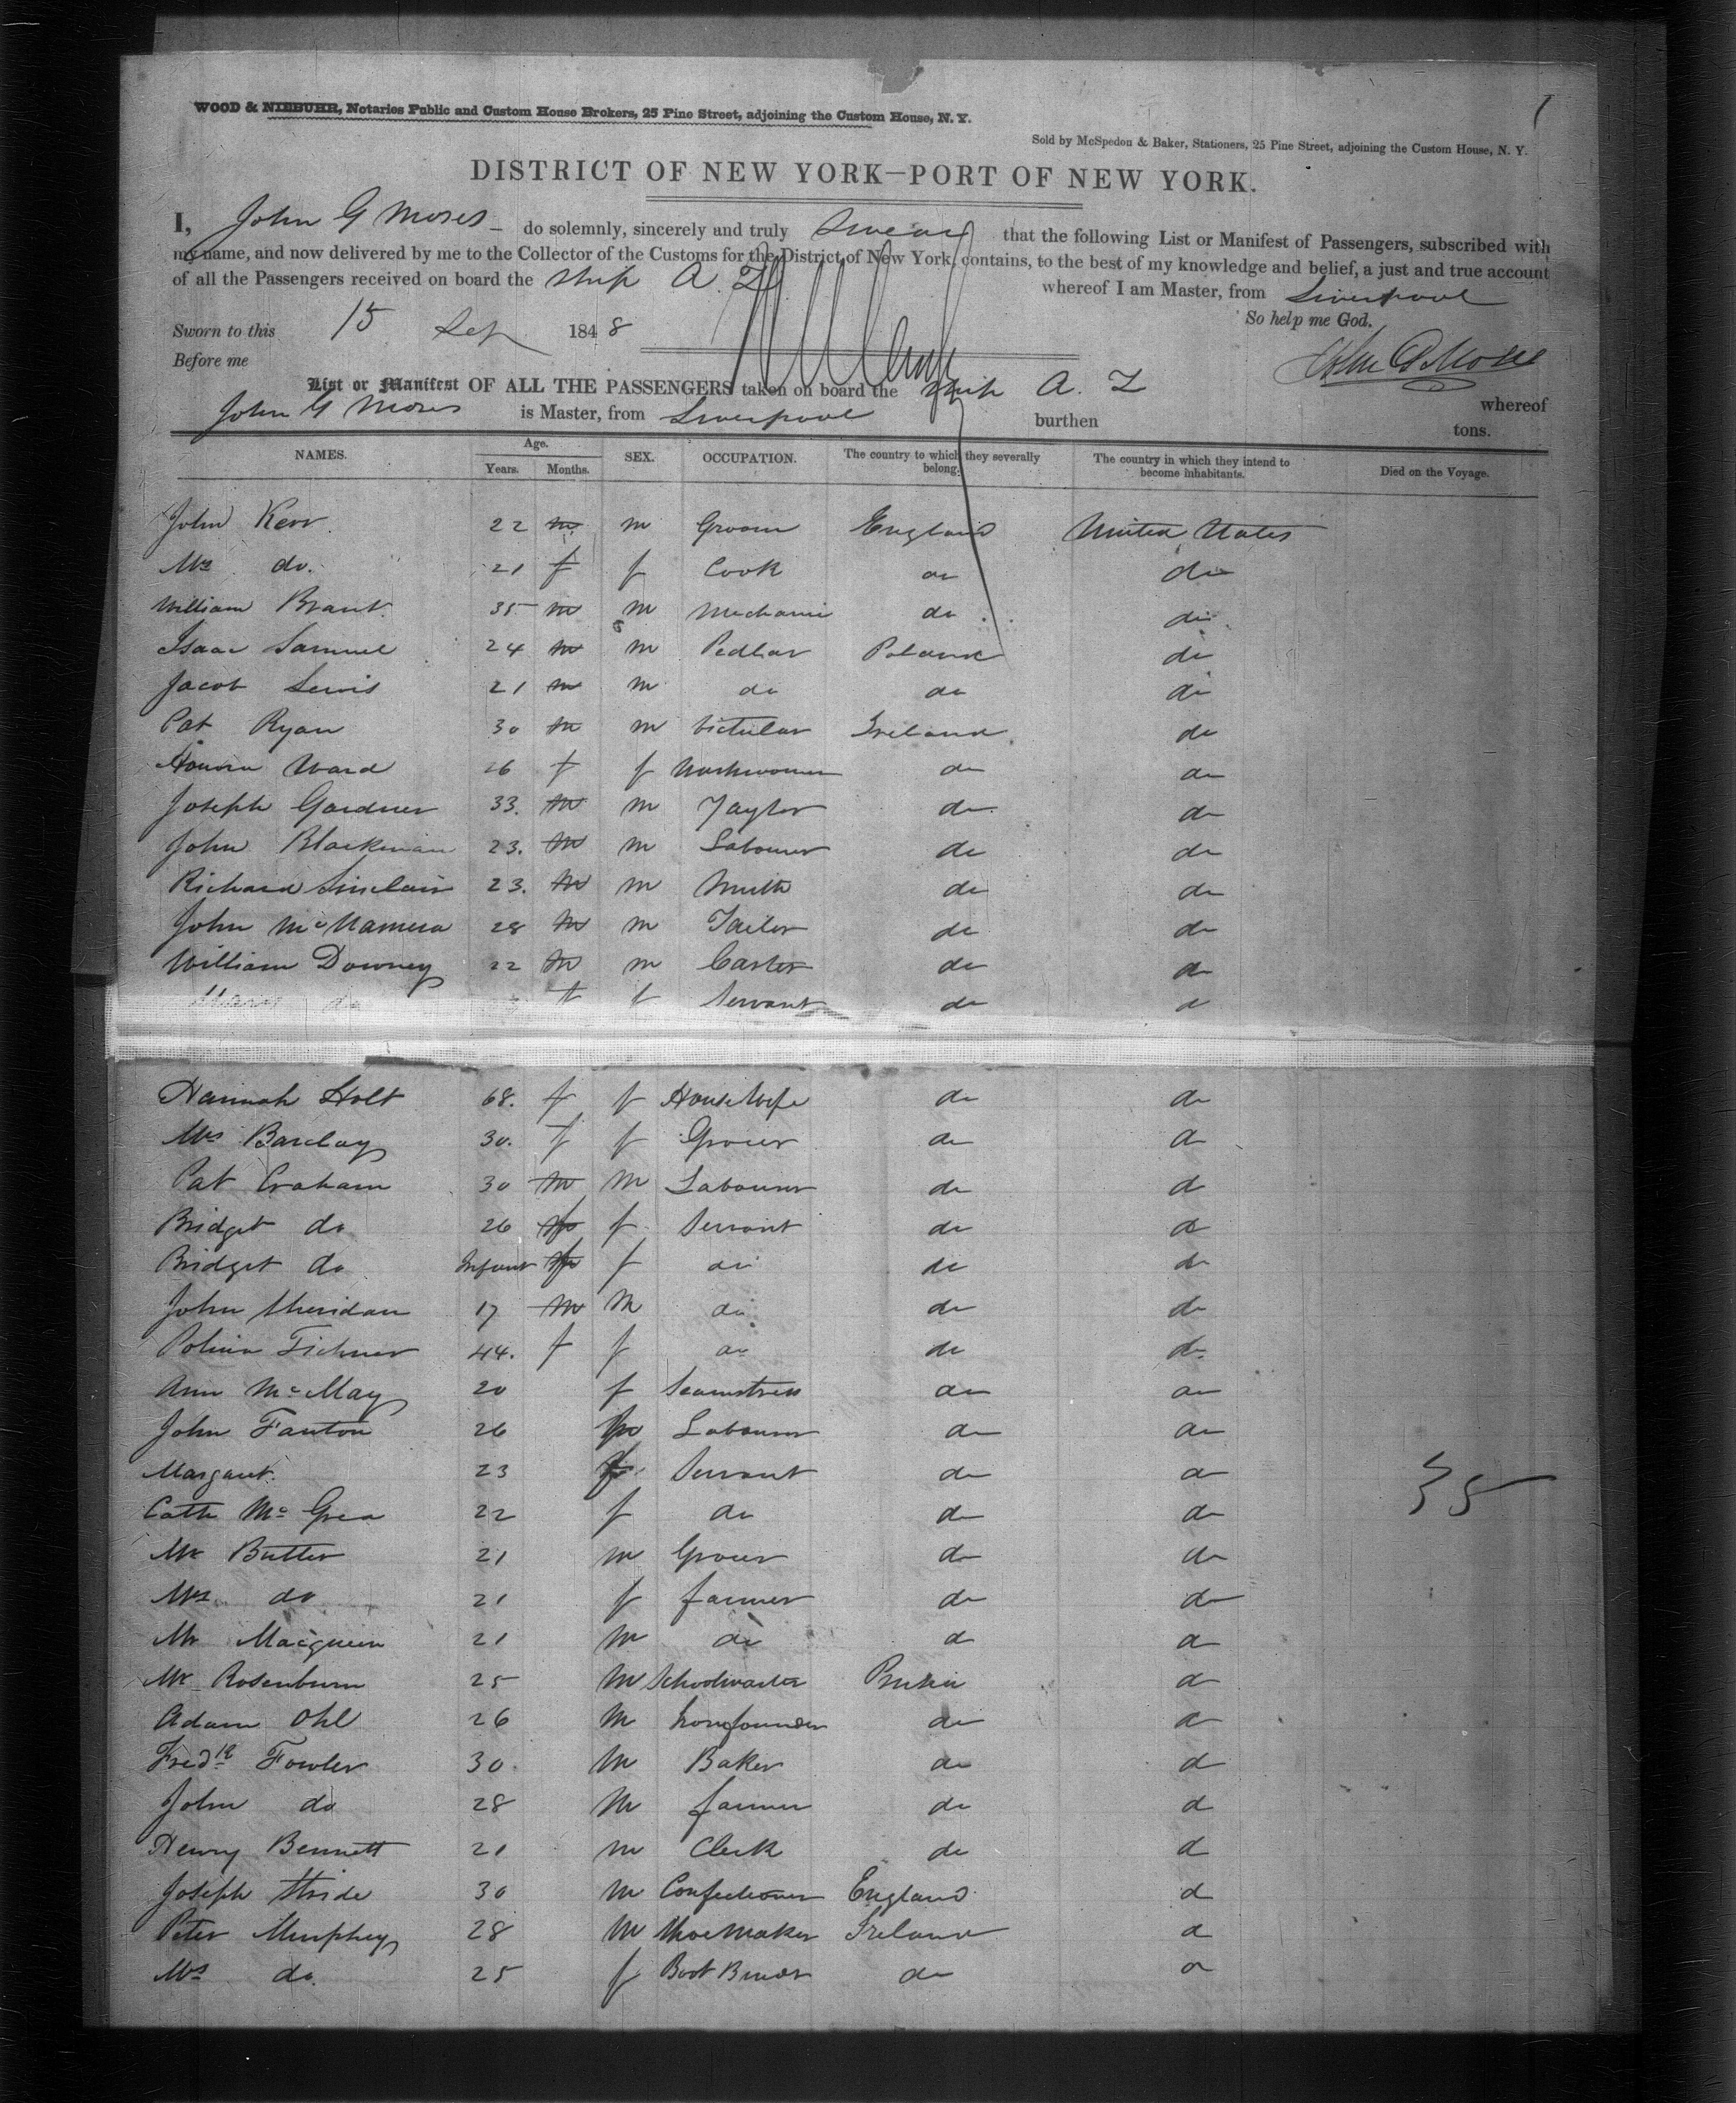 WOOD & NIEBUHR, Notaries Public and Custom House Brokers, 25 Pine Street, adjoining the Custom House, N. Y.
Sold by McSpedon & Baker, Stationers, 25 Pine Street, adjoining the Custom House, N. Y.
DISTRICT OF NEW YORK—PORT OF NEW YORK.
I, John G Moses do solemnly, sincerely and truly swear that the following List or Manifest of Passengers, subscribed with
my name, and now delivered by me to the Collector of the Customs for the District of New York, contains, to the best of my knowledge and belief, a just and true account
of all the Passengers received on board the ship A. Z. whereof I am Master, from Liverpool
So help me God.
Sworn to this 15 Sep 1848
Before me
John G Moses
List or Manifest OF ALL THE PASSENGERS taken on board the ship A. Z whereof
John G Moses is Master, from Liverpool burthen tons.
NAMES. Age. Years. Months. SEX. OCCUPATION. The country to which they severally belong. The country in which they intend to become inhabitants. Died on the Voyage.
John Kerr 22 m m Groom England United States
Mrs do. 21 f f Cook do do
William Brant 35 m m Mechanic do do
Isaac Samuel 24 m m Pedlar Poland do
Jacob Lewis 21 m m do do do
Pat Ryan 30 m m Victular Ireland do
Honora Ward 26 f f Washwoman do do
Joseph Gardner 33. m m Taylor do do
John Blackman 23. m m Labourer do do
Richard Sinclair 23. m m Smith do do
John McNamera 28 m m Tailor do do
William Downey 22 m m Carter do do
do f f Servant do d
Hannah Holt 68. f f House Wife do do
Mrs Barclay 30. f f Grocer do d
Pat Graham 30 m m Labourer do d
Bridget do 26 f Servant do do
Bridget do Infant f do do do
John Sheridan 17 m m do do do
Tichner 44. f f do do do
Ann McMay 20 f Seamstress do do
John Fanton 26 m Labourer do do
Margaret. 23 f Servant do do
Cath Mc Grea 22 f do do do
35
Mr Butler 21 m Grocer do do
Mrs do 21 f farmer do do
Mr Macqueen 21 m do d do
Mr Rosenburn 25 m Schoolmaster do
Adam Ohl 26 m Ironfounder do do
Fredk Fowler 30 m Baker do d
John do 28 m farmer do d
Henry Bennett 21 m Clerk do d
Joseph Stride 30 m Confectioner England d
Peter Murphey 28 m Shoemaker Ireland d
Mrs do. 25 f Boot Binder do d